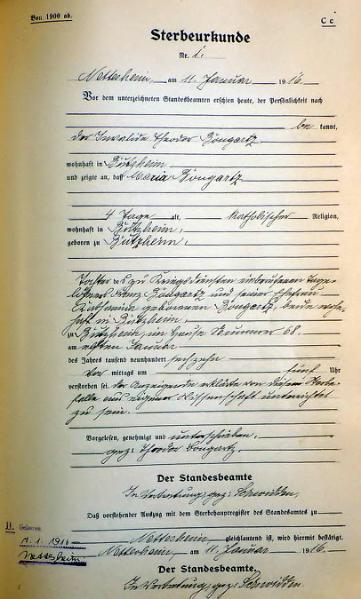 Von 1900 ab.
C c
Sterbeurkunde
Nr. 1.
Nettersheim, am 11. Januar 1916
Vor dem unterzeichneten Standesbeamten erschien heute, der Persönlichkeit nach
be kannt,
der Invalide Theodor Böngartz
wohnhaft in Butzheim
und zeigte an, daß Maria Böngartz
4 Tage alt, katholischer Religion,
wohnhaft in Butzheim,
geboren zu Butzheim,
Tochter des zu Kriegsdiensten einberufenen Tage-
Böngartz und seiner Ehefrau
Katharina geborenen Böngartz, beide wohn-
haft in Butzheim,
zu Butzheim, im Hause Nummer 68.
am Januar
des Jahres tausend neunhundert sechzehn
Vor mittags um fünf Uhr
verstorben sei. Der Anzeigende erklärte von diesem Sterbe-
falle aus eigener Wissenschaft unterrichtet
zu sein.
Vorgelesen, genehmigt und unterschrieben.
gez: Theodor Böngartz.
Der Standesbeamte
In Vertretung, gez:
Daß vorstehender Auszug mit dem Sterbehauptregister des Standesamts zu
gleichlautend ist, wird hiermit bestätigt.
am 11. Januar 1916.
Der Standesbeamte,
In Vertretung, gez: